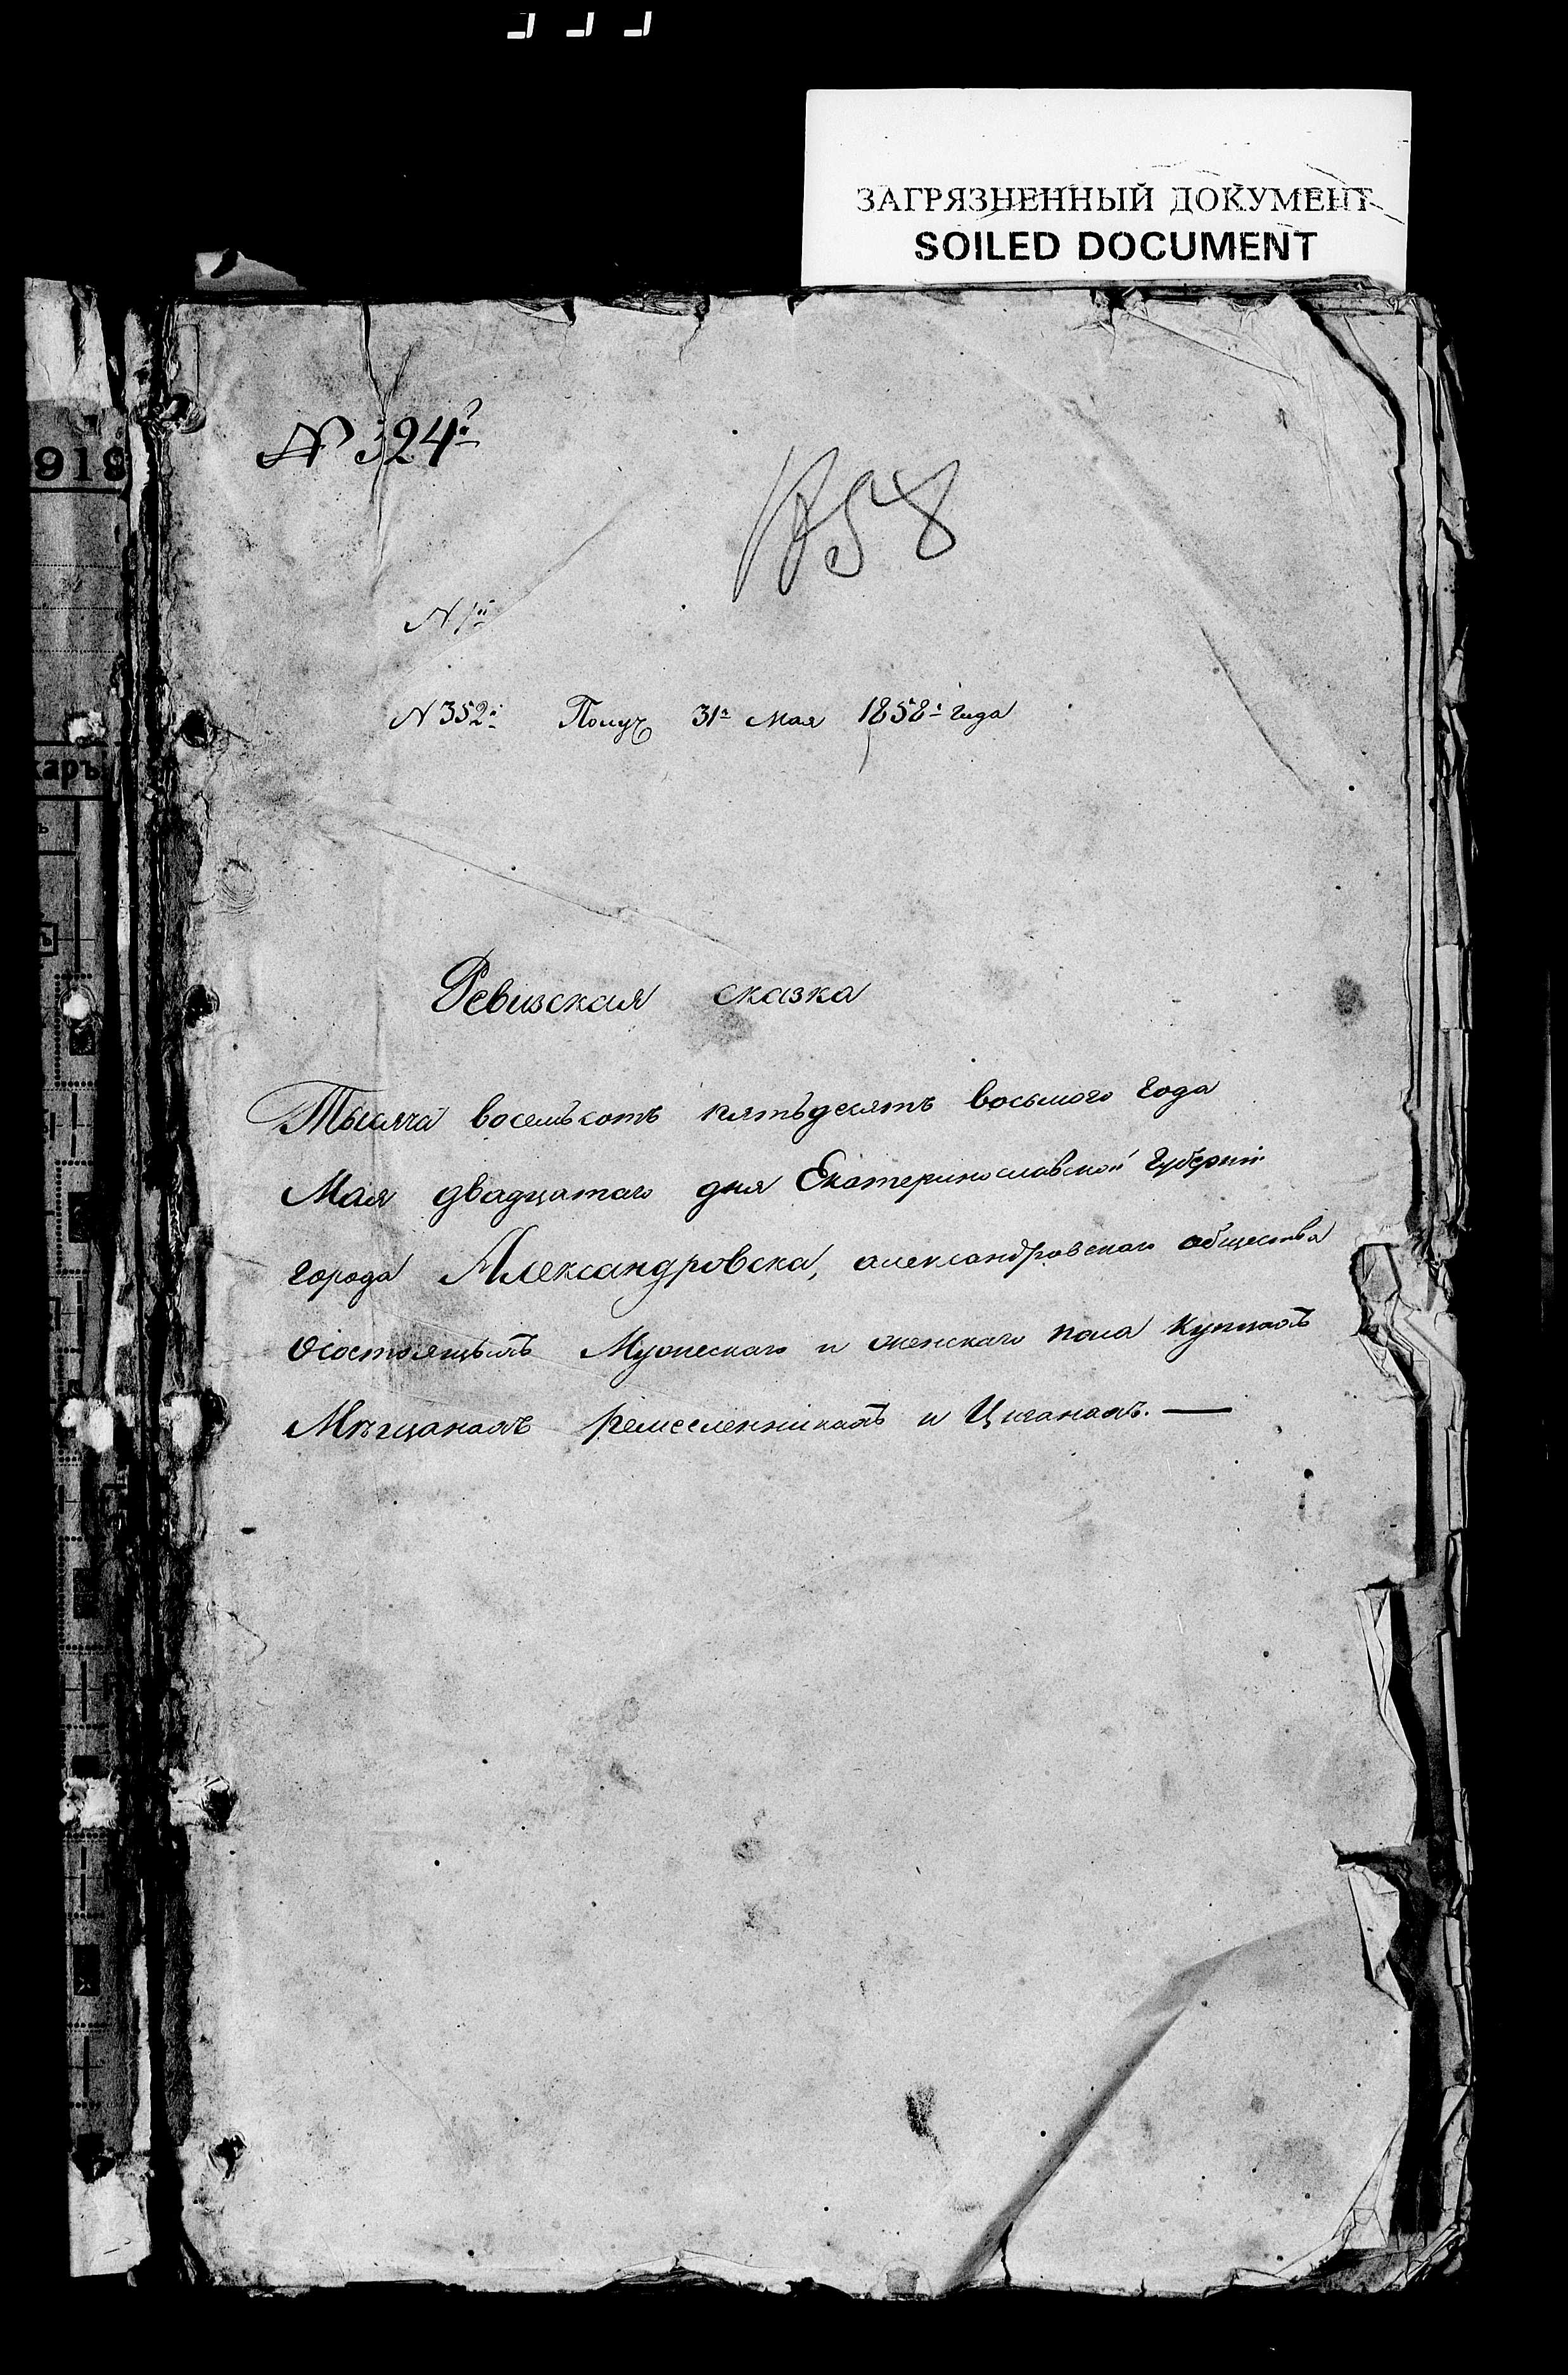 ЗАГРЯЗНЕННЫЙ ДОКУМЕНТ
SOILED DOCUMENT
918
№ 324й
1858
N 1й
N 352й Получ 31го Мая 1858го года
каръ
Ревизская сказка
Тысяча восемьсотъ пятьдесятъ восьмого года
Мая двадцатаго дня Екатеринославской Губерніи
города Александровска, александровскаго общества
О состоящихъ Мужескаго и женскаго пола купцахъ
Мѣщанахъ ремесленникахъ и Цыганахъ. —